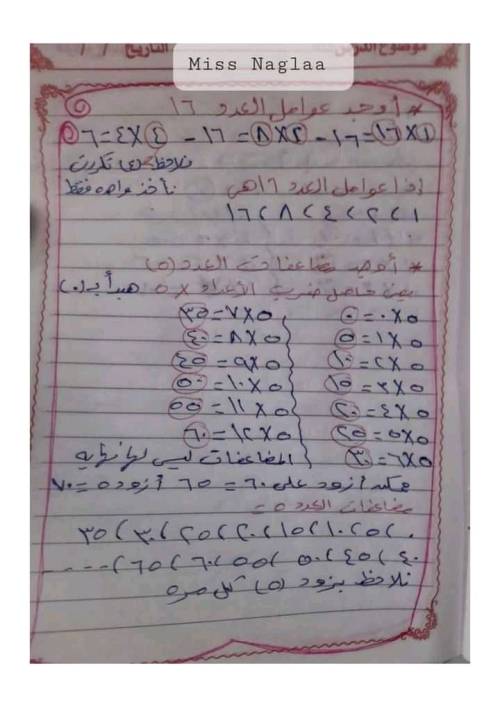 موضوع الدرس
التاريخ / /
Miss Naglaa
* أوجد عوامل العدد ١٦
١×١٦=١٦ - ٢×٨=١٦ - ٤×٤=١٦
نلاحظ ٤ تكررت
نأخذ واحده فقط
إذا عوامل العدد ١٦ هى
١ ، ٢ ، ٤ ، ٨ ، ١٦
* أوجد مضاعفات العدد (٥)
يعنى حاصل ضرب الأعداد × ٥ هبدأ بـ (٠)
٥×٠=٠
٥×١=٥
٥×٢=١٠
٥×٣=١٥
٥×٤=٢٠
٥×٥=٢٥
٥×٦=٣٠
٥×٧=٣٥
٥×٨=٤٠
٥×٩=٤٥
٥×١٠=٥٠
٥×١١=٥٥
٥×١٢=٦٠
المضاعفات ليس لها نهايه
ممكن أزود على ٦٠ = ٦٥ أزود ٥ = ٧٠
مضاعفات العدد ٥ =
٠ ، ٥ ، ١٠ ، ١٥ ، ٢٠ ، ٢٥ ، ٣٠ ، ٣٥
٤٠ ، ٤٥ ، ٥٠ ، ٥٥ ، ٦٠ ، ٦٥ ، ----
نلاحظ بنزود (٥) كل مره